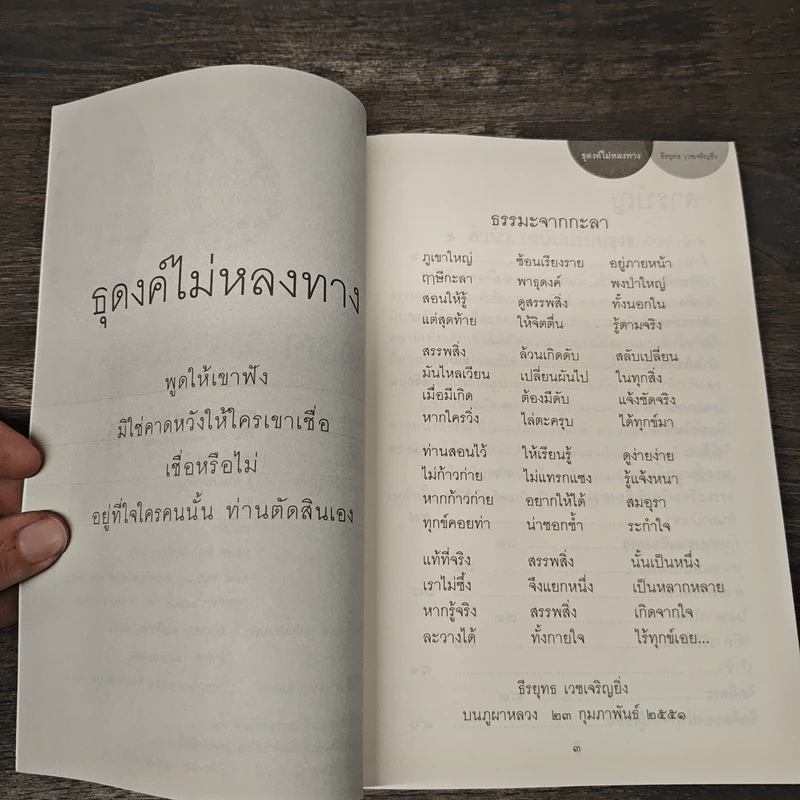 ธุดงค์ไม่หลงทาง
พูดให้เขาฟัง
มิใช่คาดหวังให้ใครเขาเชื่อ
เชื่อหรือไม่
อยู่ที่ใจใครคนนั้น ท่านตัดสินเอง
ธุดงค์ไม่หลงทาง ธีรยุทธ เวชเจริญยิ่ง
ธรรมะจากกะลา
ภูเขาใหญ่ ซ้อนเรียงราย อยู่ภายหน้า
ฤๅษีกะลา พาธุดงค์ พงป่าใหญ่
สอนให้รู้ ดูสรรพสิ่ง ทั้งนอกใน
แต่สุดท้าย ให้จิตตื่น รู้ตามจริง
สรรพสิ่ง ล้วนเกิดดับ สลับเปลี่ยน
มันไหลเวียน เปลี่ยนผันไป ในทุกสิ่ง
เมื่อมีเกิด ต้องมีดับ แจ้งชัดจริง
หากใครวิ่ง ไล่ตะครุบ ได้ทุกข์มา
ท่านสอนไว้ ให้เรียนรู้ ดูง่ายง่าย
ไม่ก้าวก่าย ไม่แทรกแซง รู้แจ้งหนา
หากก้าวก่าย อยากให้ได้ สมอุรา
ทุกข์คอยท่า น่าชอกช้ำ ระกำใจ
แท้ที่จริง สรรพสิ่ง นั้นเป็นหนึ่ง
เราไม่ซึ้ง จึงแยกหนึ่ง เป็นหลากหลาย
หากรู้จริง สรรพสิ่ง เกิดจากใจ
ละวางได้ ทั้งกายใจ ไร้ทุกข์เอย...
ธีรยุทธ เวชเจริญยิ่ง
บนภูผาหลวง ๒๓ กุมภาพันธ์ ๒๕๕๑
๓